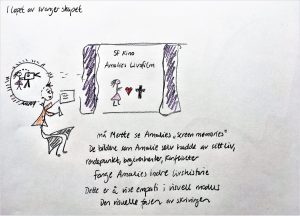 I løpet av svangerskapet
SF Kino
Amalies Livsfilm
må Mette se Amalies „screen memories"
De bildene som Amalie selv hadde av sitt liv,
vendepunkt, begivenheter, konflikter
Fange Amalies indre livshistorie
Dette er å vise empati i visuell modus
Den visuelle fasen av skrivingen